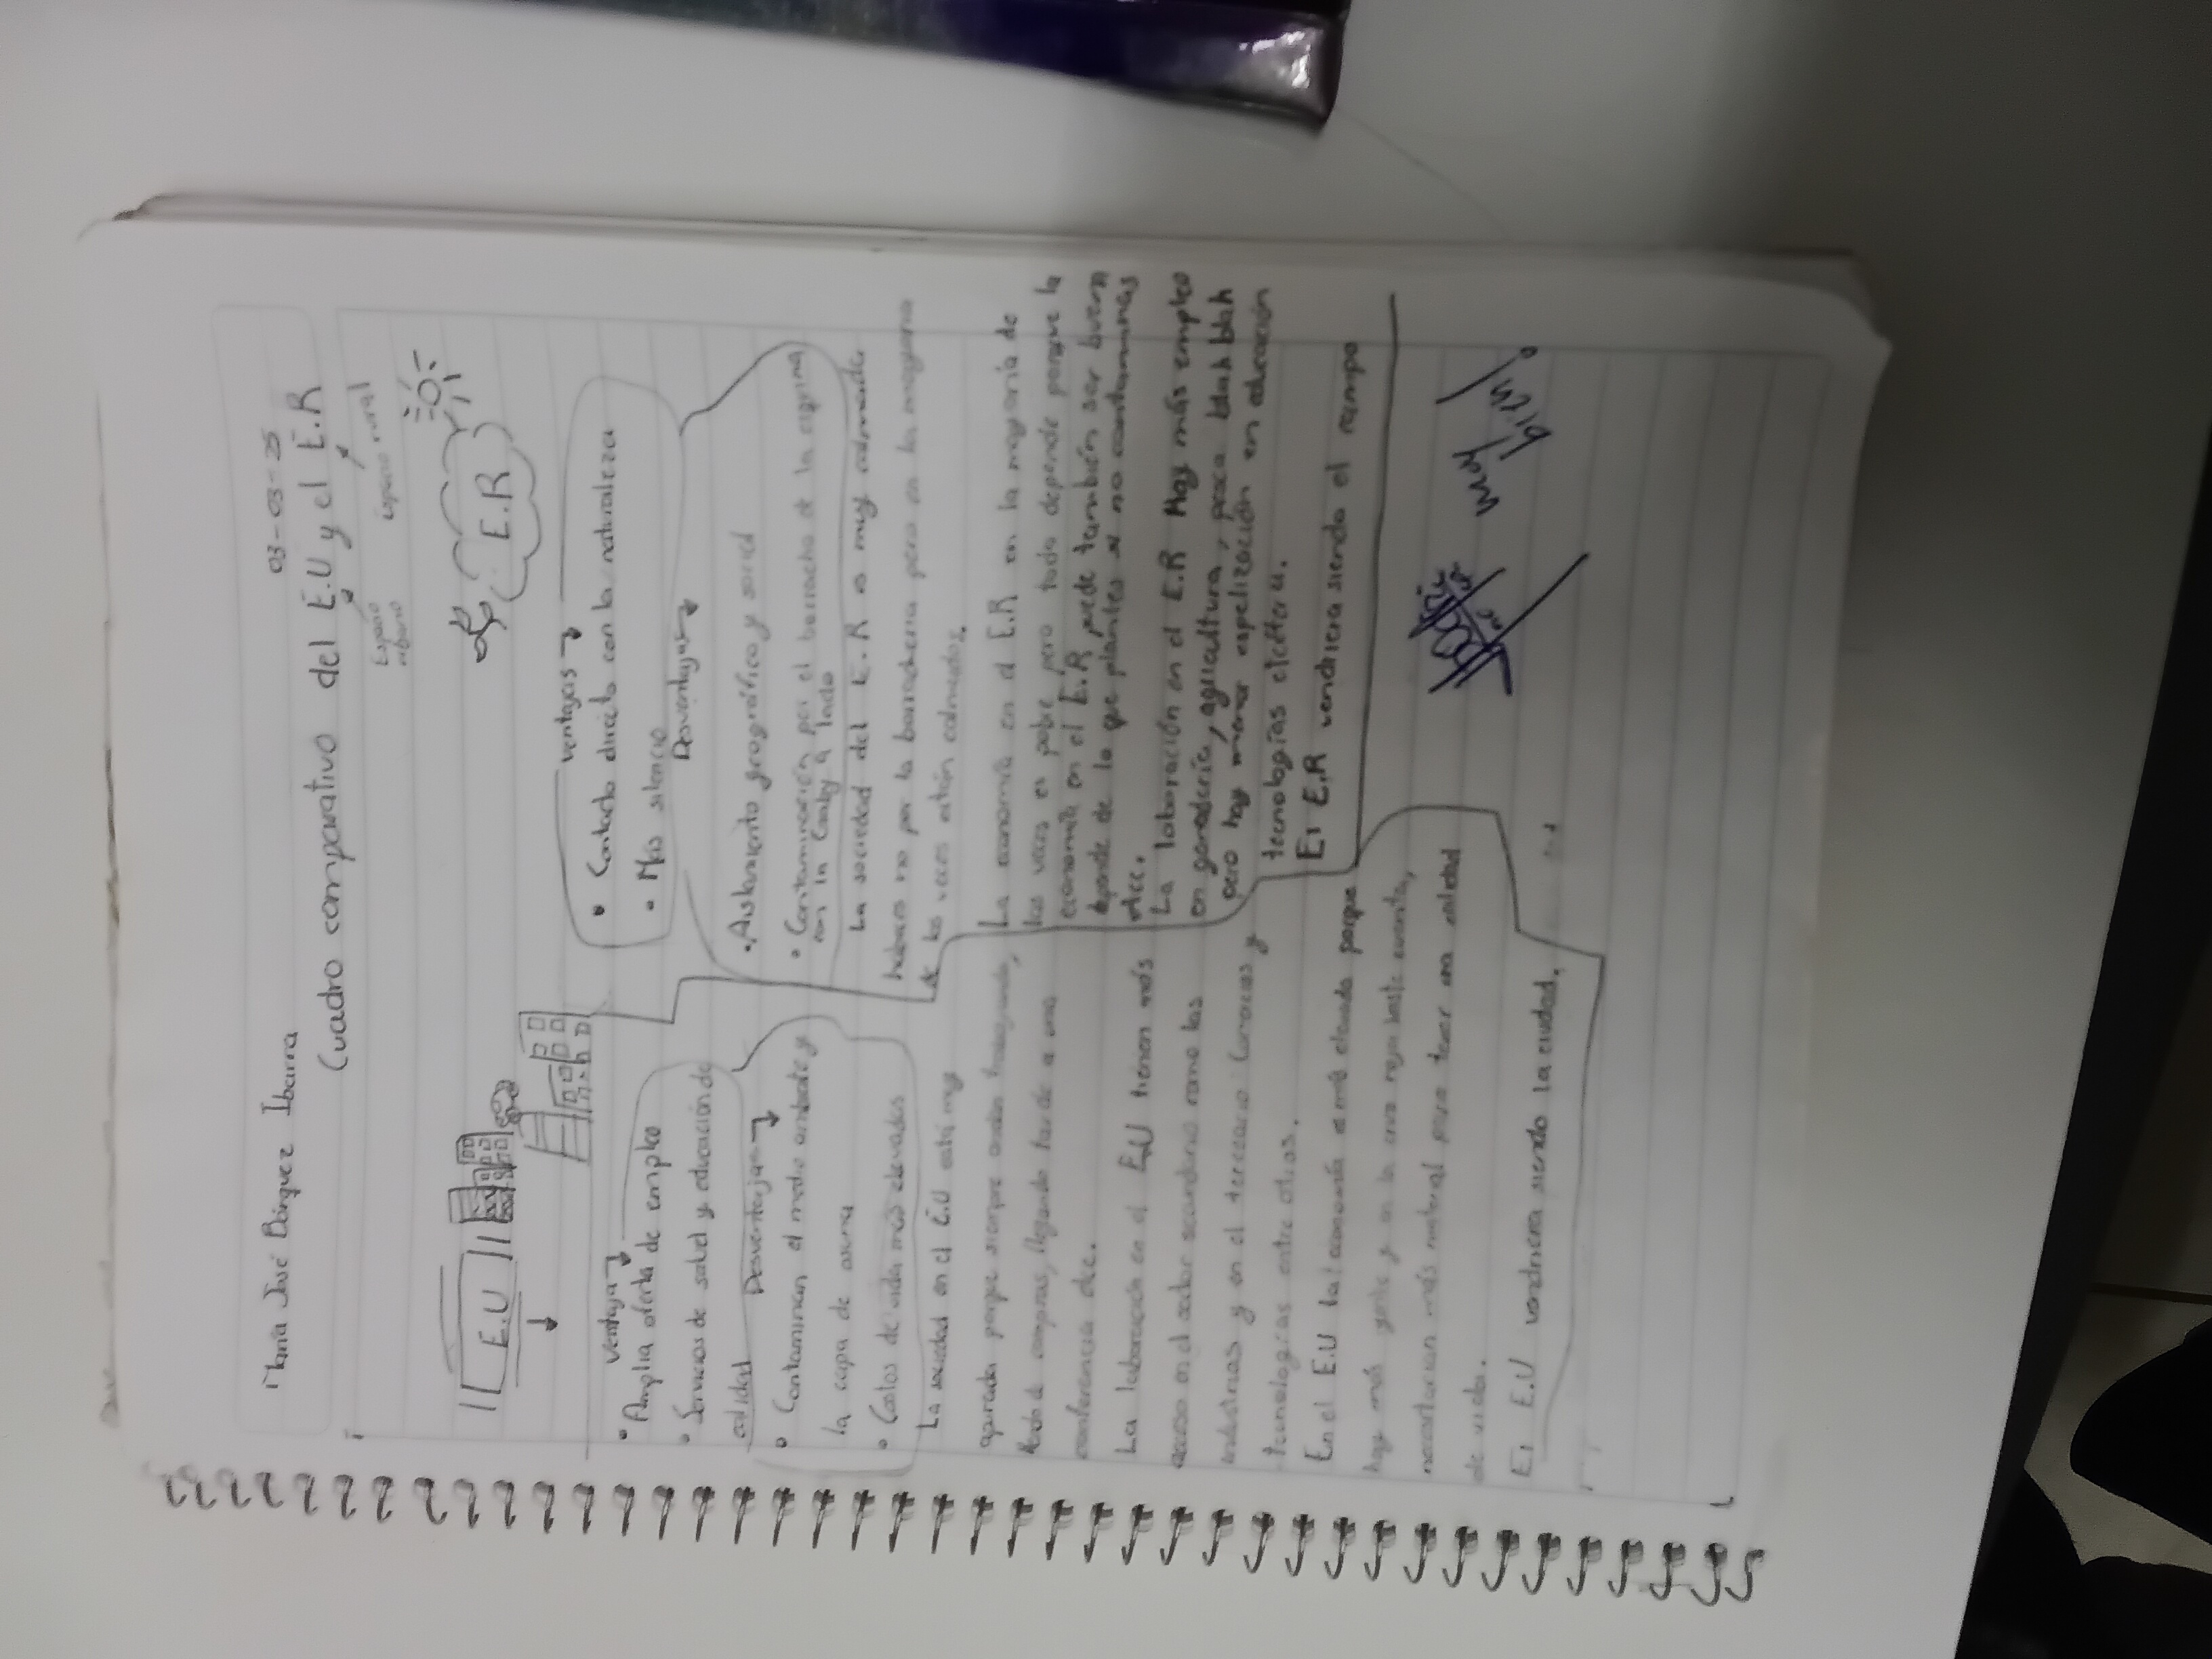 María José Bórquez Ibarra
03-03-25
Cuadro comparativo del E.U y el E.R
Espacio
urbano
Espacio rural
E.U
ventaja
• Amplia oferta de empleo
• Servicios de salud y educación de
calidad
Desventajas
• Contaminan el medio ambiente y
la capa de ozono
• Costos de vida más elevados
La sociedad en el E.U está muy
apurada porque siempre andan trabajando,
yendo de compras, llegando tarde a una
conferencia etc.
La laboración en el E.U tienen más
acceso en el sector secundario como las
industrias y en el terceario comercios y
tecnologías entre otras.
En el E.U la economía es más elevada porque
hay más gente y en la
necesitarían más material para tener una calidad
de vida.
El E.U vendriera siendo la ciudad.
E.R
ventajas
• Contacto directo con la naturaleza
• Más silencio
Desventajas
• Aislamiento geográfico y social
• Contaminación por el borracho de la esquina
con la a lado
La sociedad del E.R es muy calmada
habeces no por la borracheria pero en la mayoria
de las veces están calmados.
La economía en el E.R en la mayoría de
las veces es pobre pero todo depende porque la
economía en el E.R puede también ser buena
depende de lo que plantes si no contaminas
etcc.
La laboración en el E.R Hay más empleo
en ganadería, agricultura, pesca blah blah
pero hay menor espelización en educación
tecnologías etcétera.
El E.R vendriera siendo el campo
muy
bien